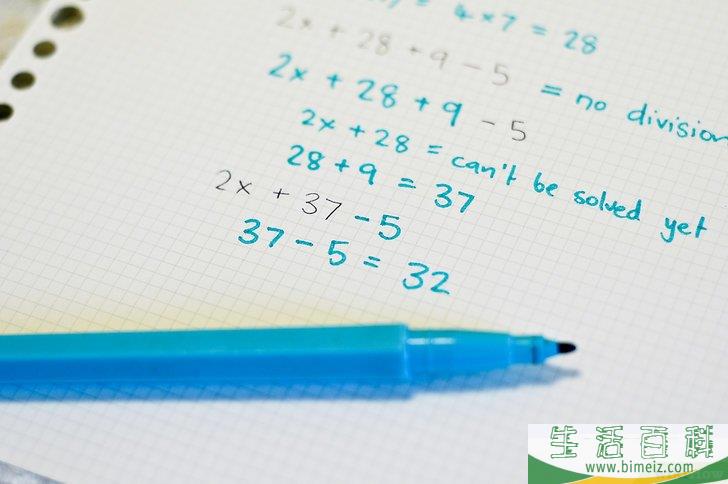 = 4 × 7 = 28
2x + 28 + 9 - 5 = no division
2x + 28 + 9 - 5
2x + 28 = can't be solved yet
28 + 9 = 37
2x + 37 - 5
37 - 5 = 32
生活百科
www.bimeiz.com